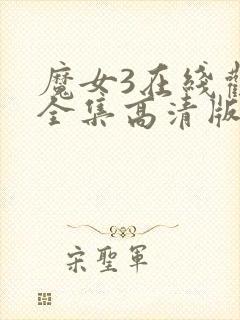 魔女3在綫觀
全集高清版
宋聖軍